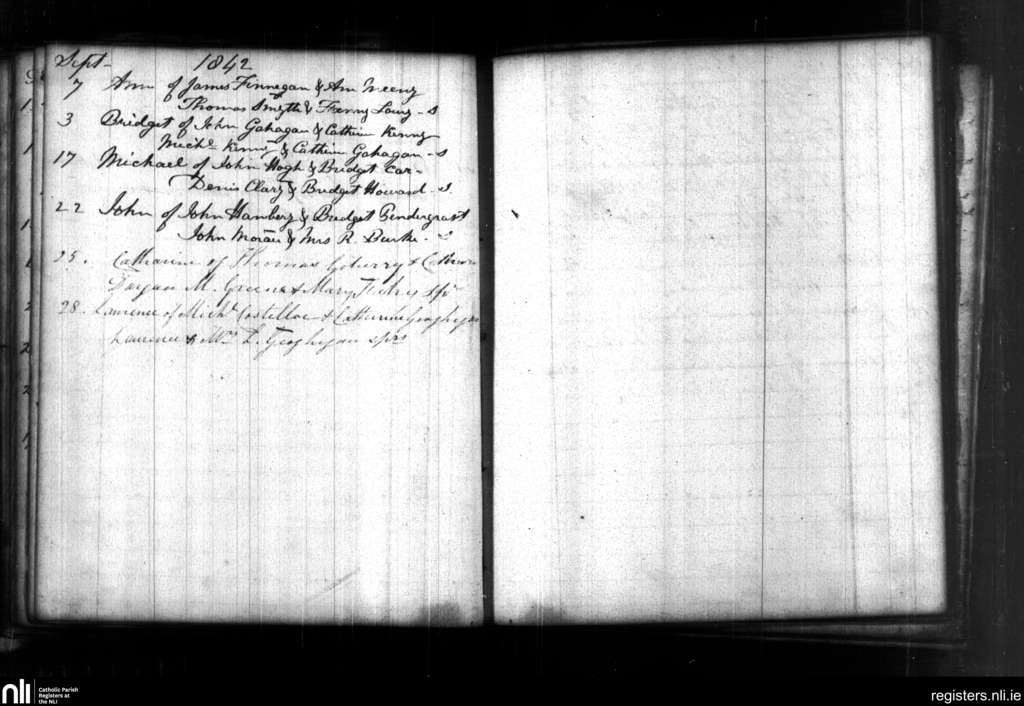 Sept- 1842
7 Ann of James Finnegan & Ann
Thomas Smyth & Fanny - S
3 Bridget of John Gahagan & Cathrin Kenny
Michl Kenny & Cathrin Gahagan - S
17 Michael of John Hogh & Bridget Car-
Denis Clary & Bridget Howard - S.
22 John of John Hanberg & Bridget Pendergrast
John Moran & Mrs R. Burke - S
25. Catharine of Thomas &
M. Greene & Mary
28. Laurence of Michl Costelloe & Catherine Geoghegan
Laurence & Mrs L. Geoghegan sprs
nli
Catholic Parish
Registers at
the NLI
registers.nli.ie